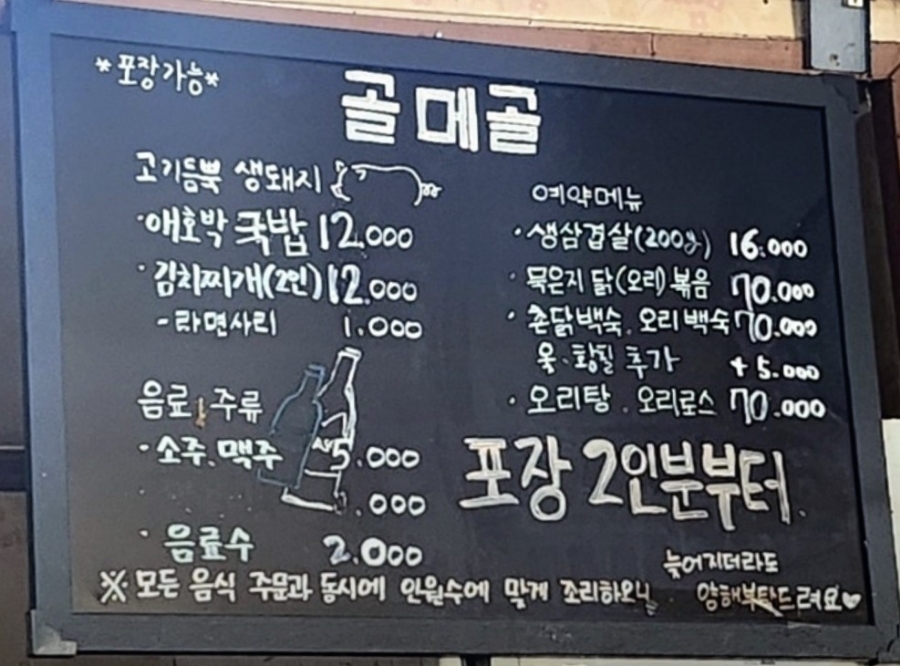 *포장가능*
골메골
고기듬뿍 생돼지
·애호박 국밥 12.000
·김치찌개(2인) 12.000
-라면사리 1.000
음료, 주류
·소주.맥주 5.000
.000
·음료수 2.000
예약메뉴
·생삼겹살(200g) 16.000
·묵은지 닭(오리)볶음 70.000
·촌닭백숙.오리백숙 70.000
옻.황칠 추가 +5.000
·오리탕.오리로스 70.000
포장 2인분부터
※모든 음식 주문과 동시에 인원수에 맞게 조리하오니
늦어지더라도
양해부탁드려요♥